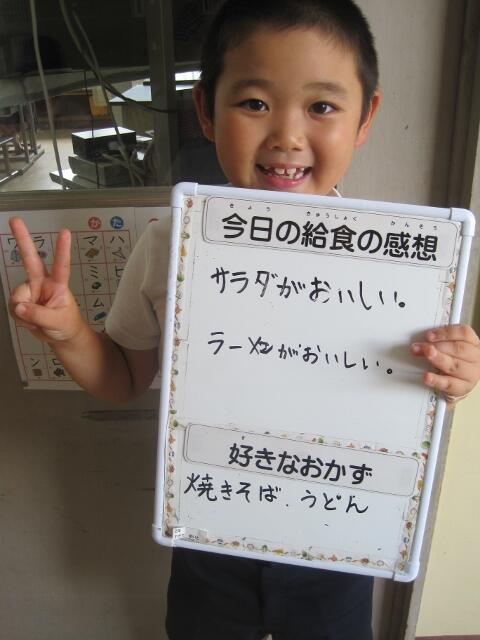 きょう きゅうしょく かんそう
今日の給食の感想
サラダがおいしい。
ラーメンがおいしい。
好きなおかず
焼きそば.うどん
カタ
ラ マ ハ
ミ ヒ
ム
ン ロ